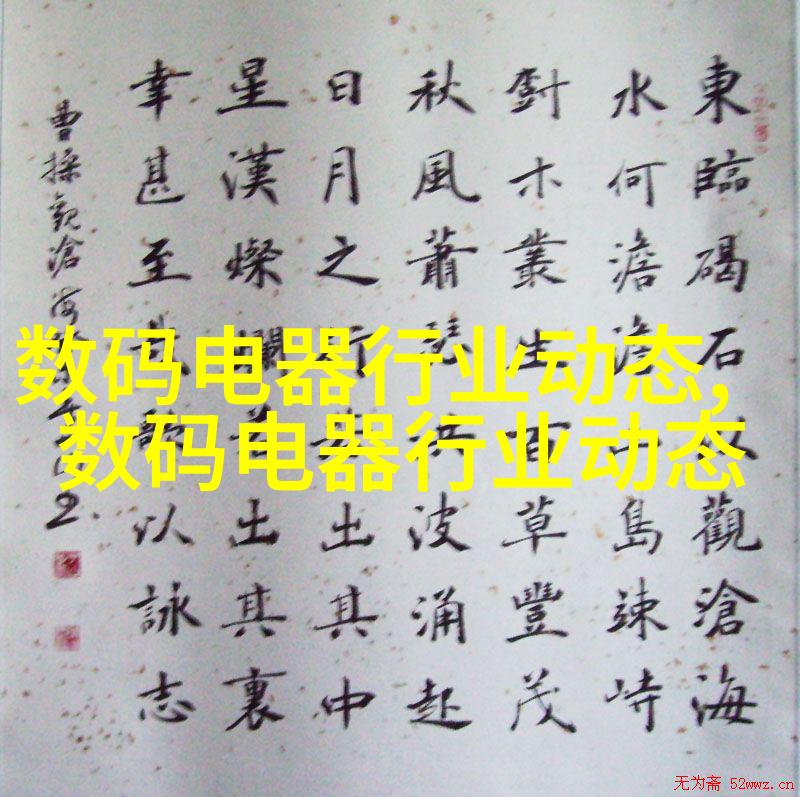 東臨碣石以觀滄海
水何澹澹山島竦峙
木叢生百草豐茂
秋風蕭瑟洪波涌起
日月之行若出其中
星漢燦爛若出其裏
幸甚至哉歌以詠志
曹操觀滄海
数码电器行业动态,
数码电器行业动态
无为斋 52wwz.cn